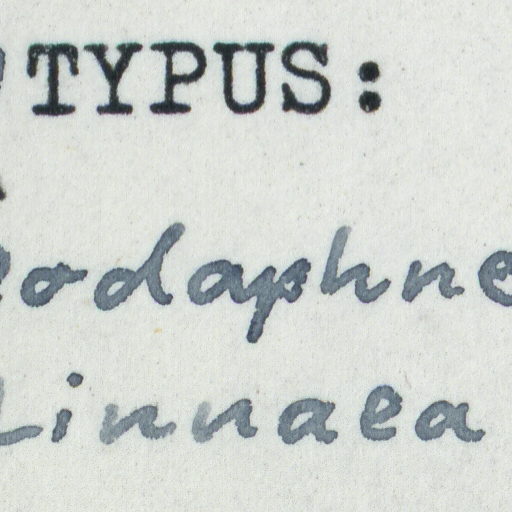 TYPUS:
eodaphne
Linnaea